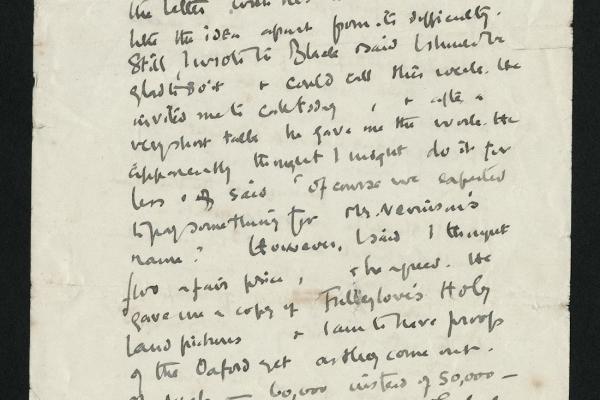 the letter
like the idea apart from its difficulty.
Still, I wrote to Black & said I should be
glad to do it & could call this week. He
invited me to call today, & after a
very short talk he gave me the work. He
apparently thought I might do it for
less & said "of course we expected
to pay something for Mr. Venison's
name". However, I said I thought
£100 a fair price, & he agreed. He
gave me a copy of Fulleylove's Holy
Land pictures & I am to have proofs
of the Oxford set as they come out.
60,000 instead of 50,000 —